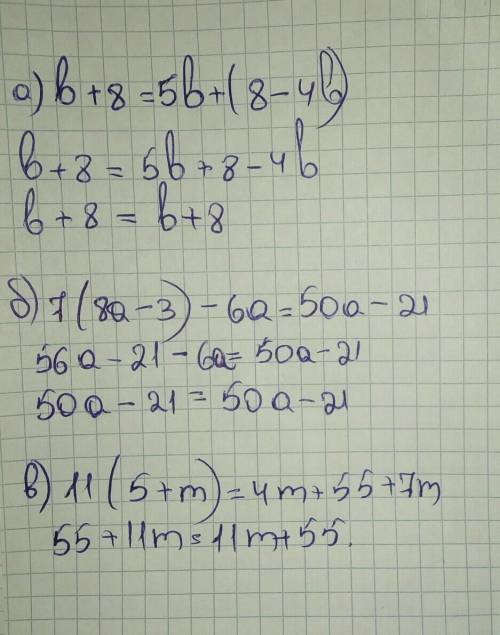 а) b + 8 = 5b + (8 - 4b)
b + 8 = 5b + 8 - 4b
b + 8 = b + 8
б) 7(8a - 3) - 6a = 50a - 21
56a - 21 - 6a = 50a - 21
50a - 21 = 50a - 21
в) 11(5 + m) = 4m + 55 + 7m
55 + 11m = 11m + 55.